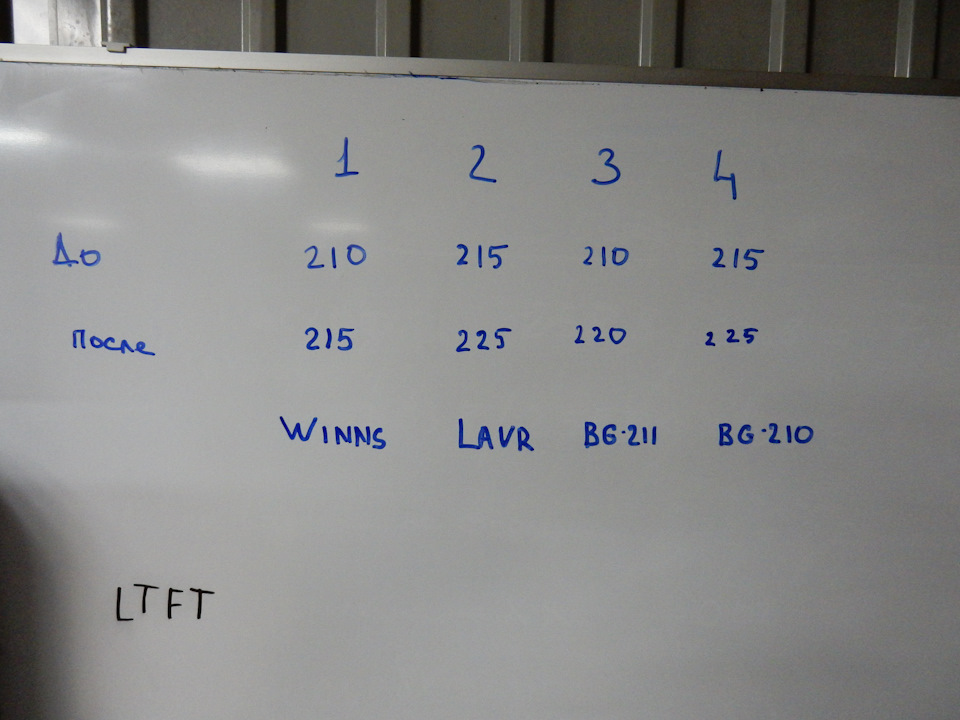 1 2 3 4
До 210 215 210 215
После 215 225 220 225
WINNS LAVR BG-211 BG-210
LTFT